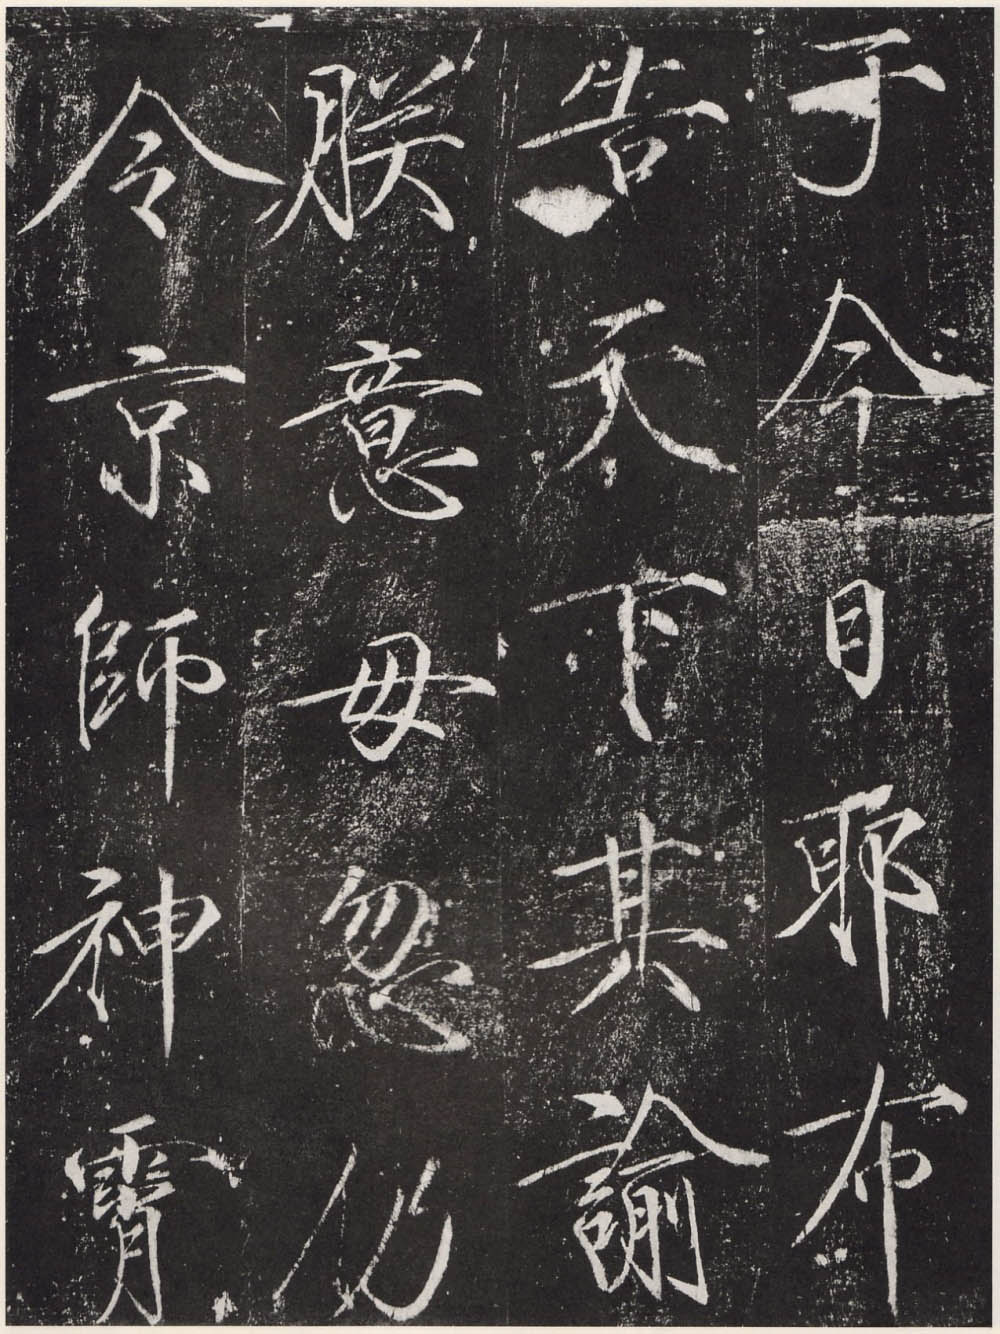 于今日耶布
告天下其諭
朕意毋忽仍
令京師神霄